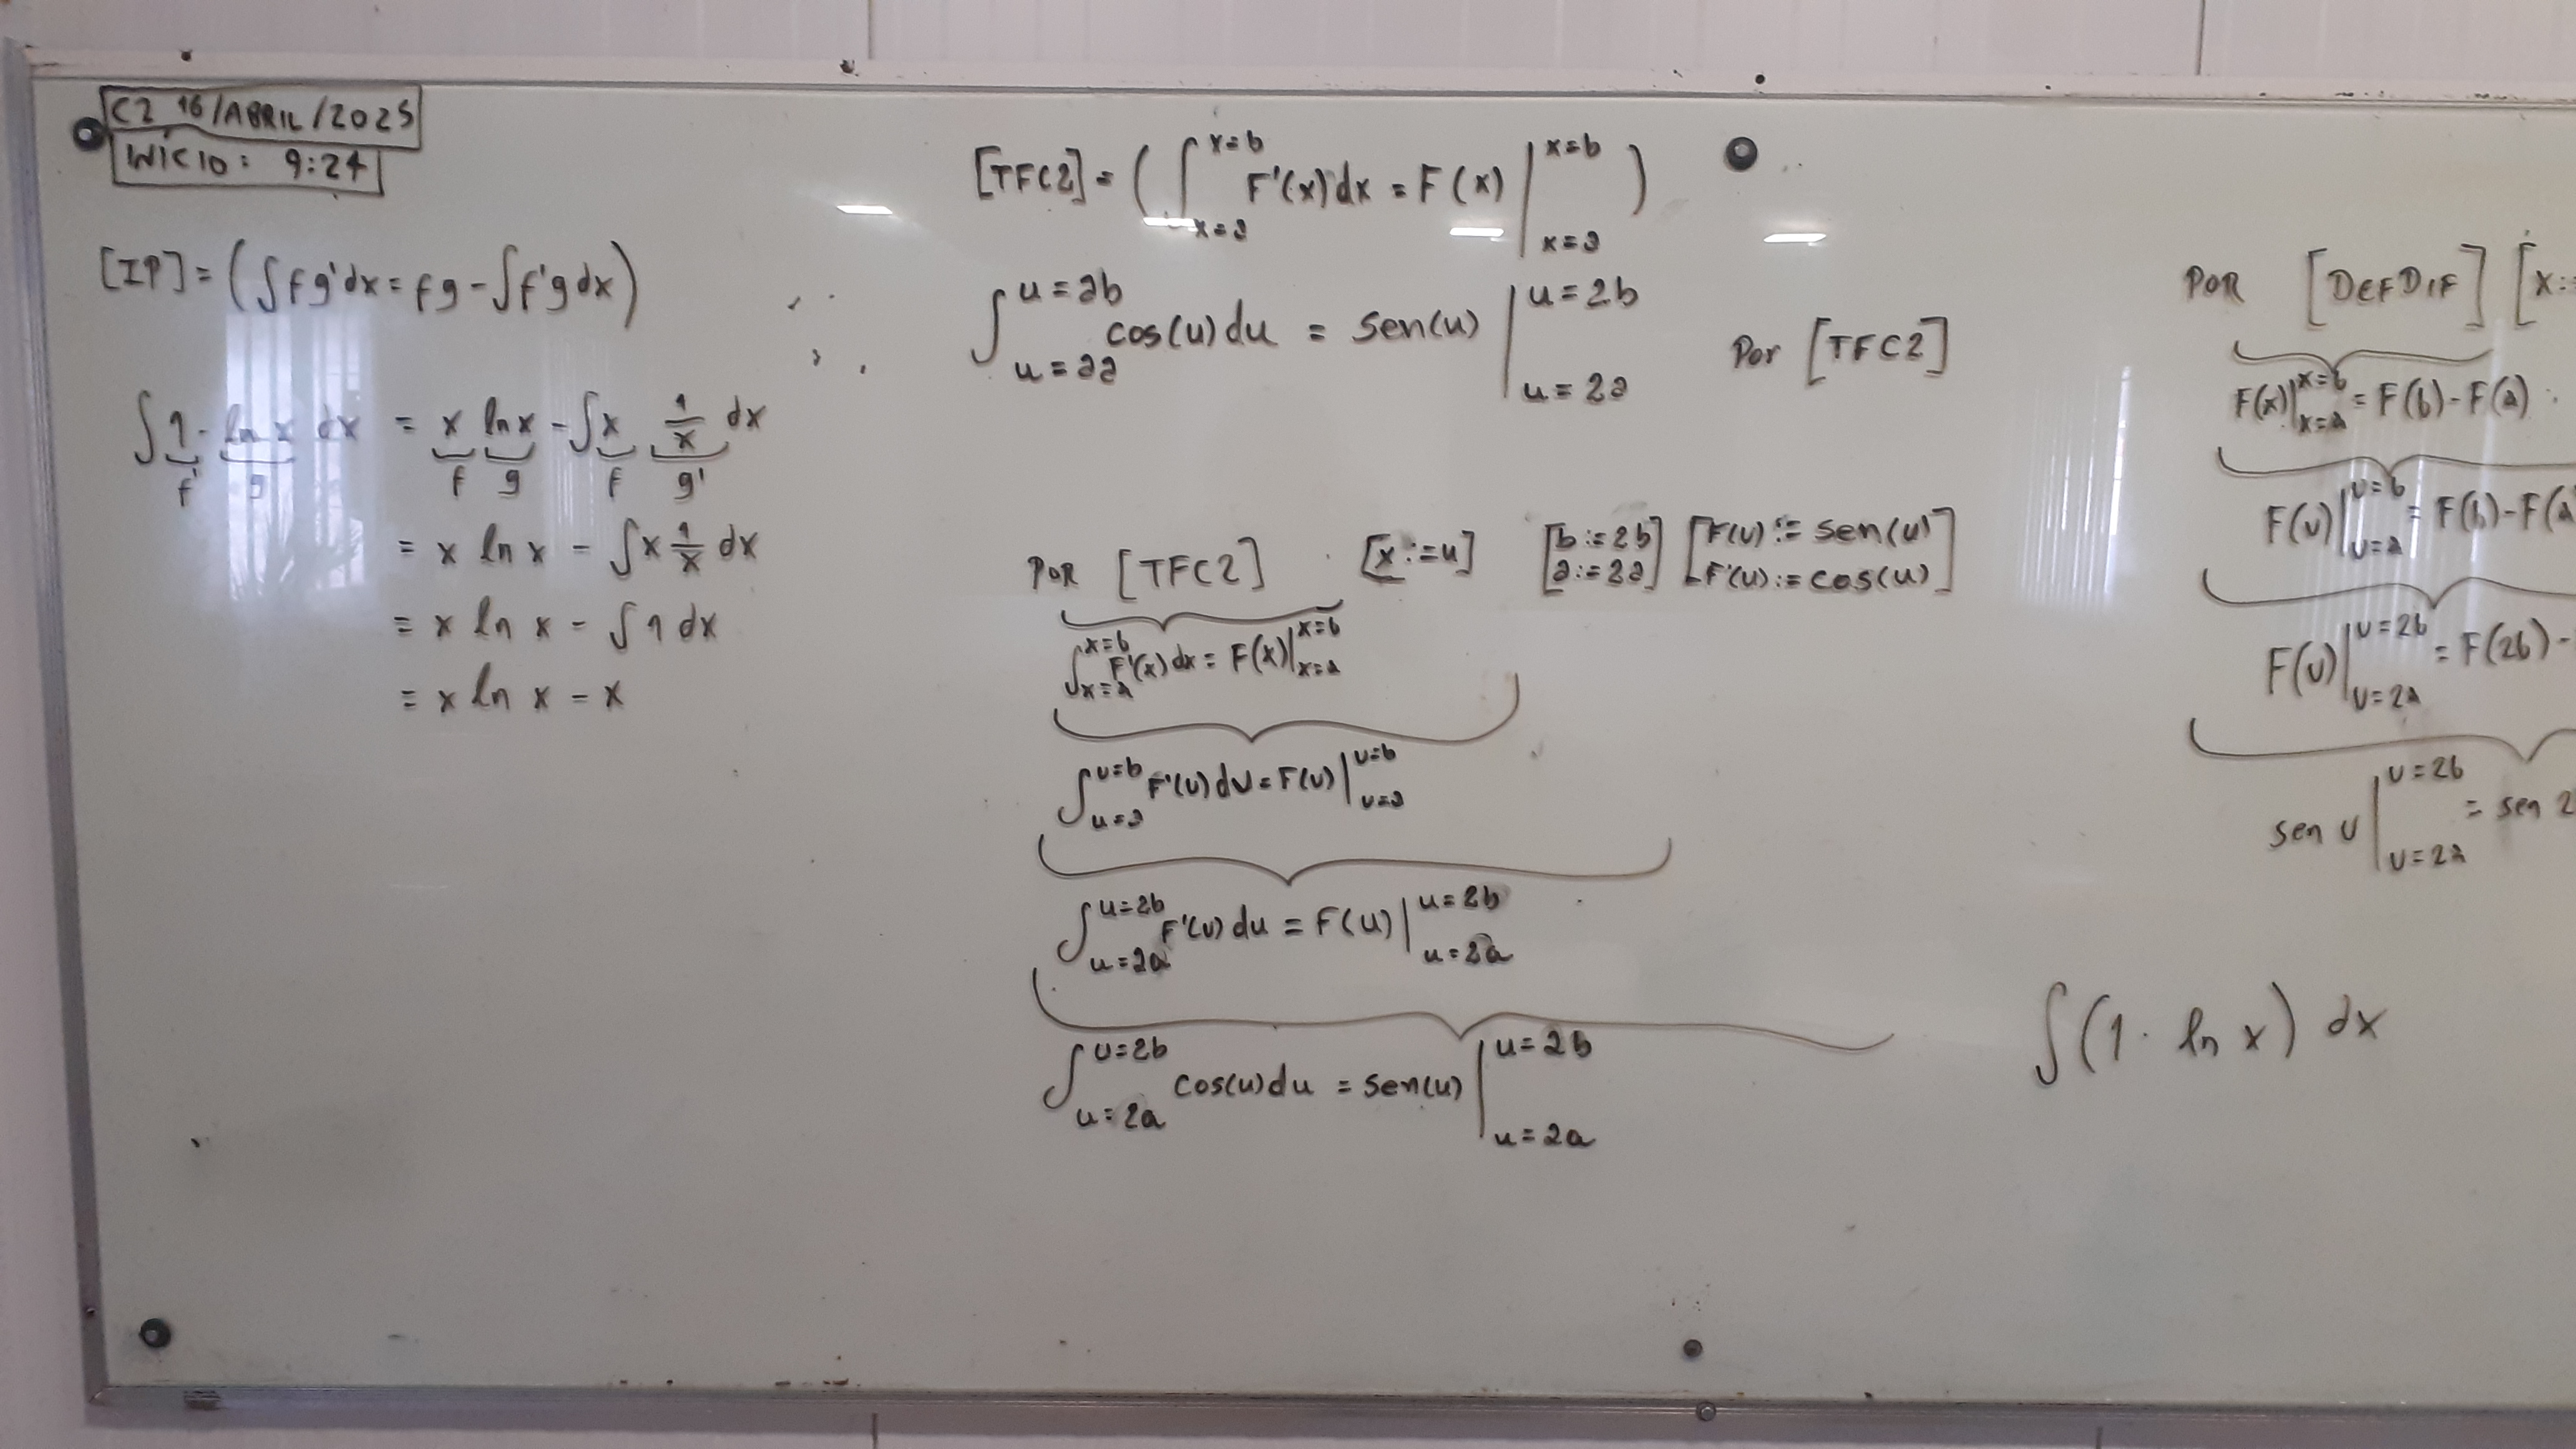 C2 16/ABRIL/2025
INÍCIO: 9:24
[IP] = (∫fg'dx = fg - ∫f'g dx)
∫1·ln x dx = x ln x - ∫x 1/x dx
f' g f g f g'
= x ln x - ∫x 1/x dx
= x ln x - ∫1 dx
= x ln x - x
[TFC2] = (∫_{x=a}^{x=b} F'(x)dx = F(x)|_{x=a}^{x=b})
∫_{u=2a}^{u=2b} cos(u)du = sen(u)|_{u=2a}^{u=2b} Por [TFC2]
POR [TFC2] [x:=u] [b:=2b a:=2a] [F(u):=sen(u) F'(u):=cos(u)]
∫_{x=a}^{x=b} F'(x)dx = F(x)|_{x=a}^{x=b}
∫_{u=a}^{u=b} F'(u)du = F(u)|_{u=a}^{u=b}
∫_{u=2a}^{u=2b} F'(u)du = F(u)|_{u=2a}^{u=2b}
∫_{u=2a}^{u=2b} cos(u)du = sen(u)|_{u=2a}^{u=2b}
POR [DEFDIF] [x:=
F(x)|_{x=a}^{x=b} = F(b)-F(a)
F(u)|_{u=a}^{u=b} = F(b)-F(a)
F(u)|_{u=2a}^{u=2b} = F(2b)-
sen u|_{u=2a}^{u=2b} = sen 2
∫(1·ln x) dx